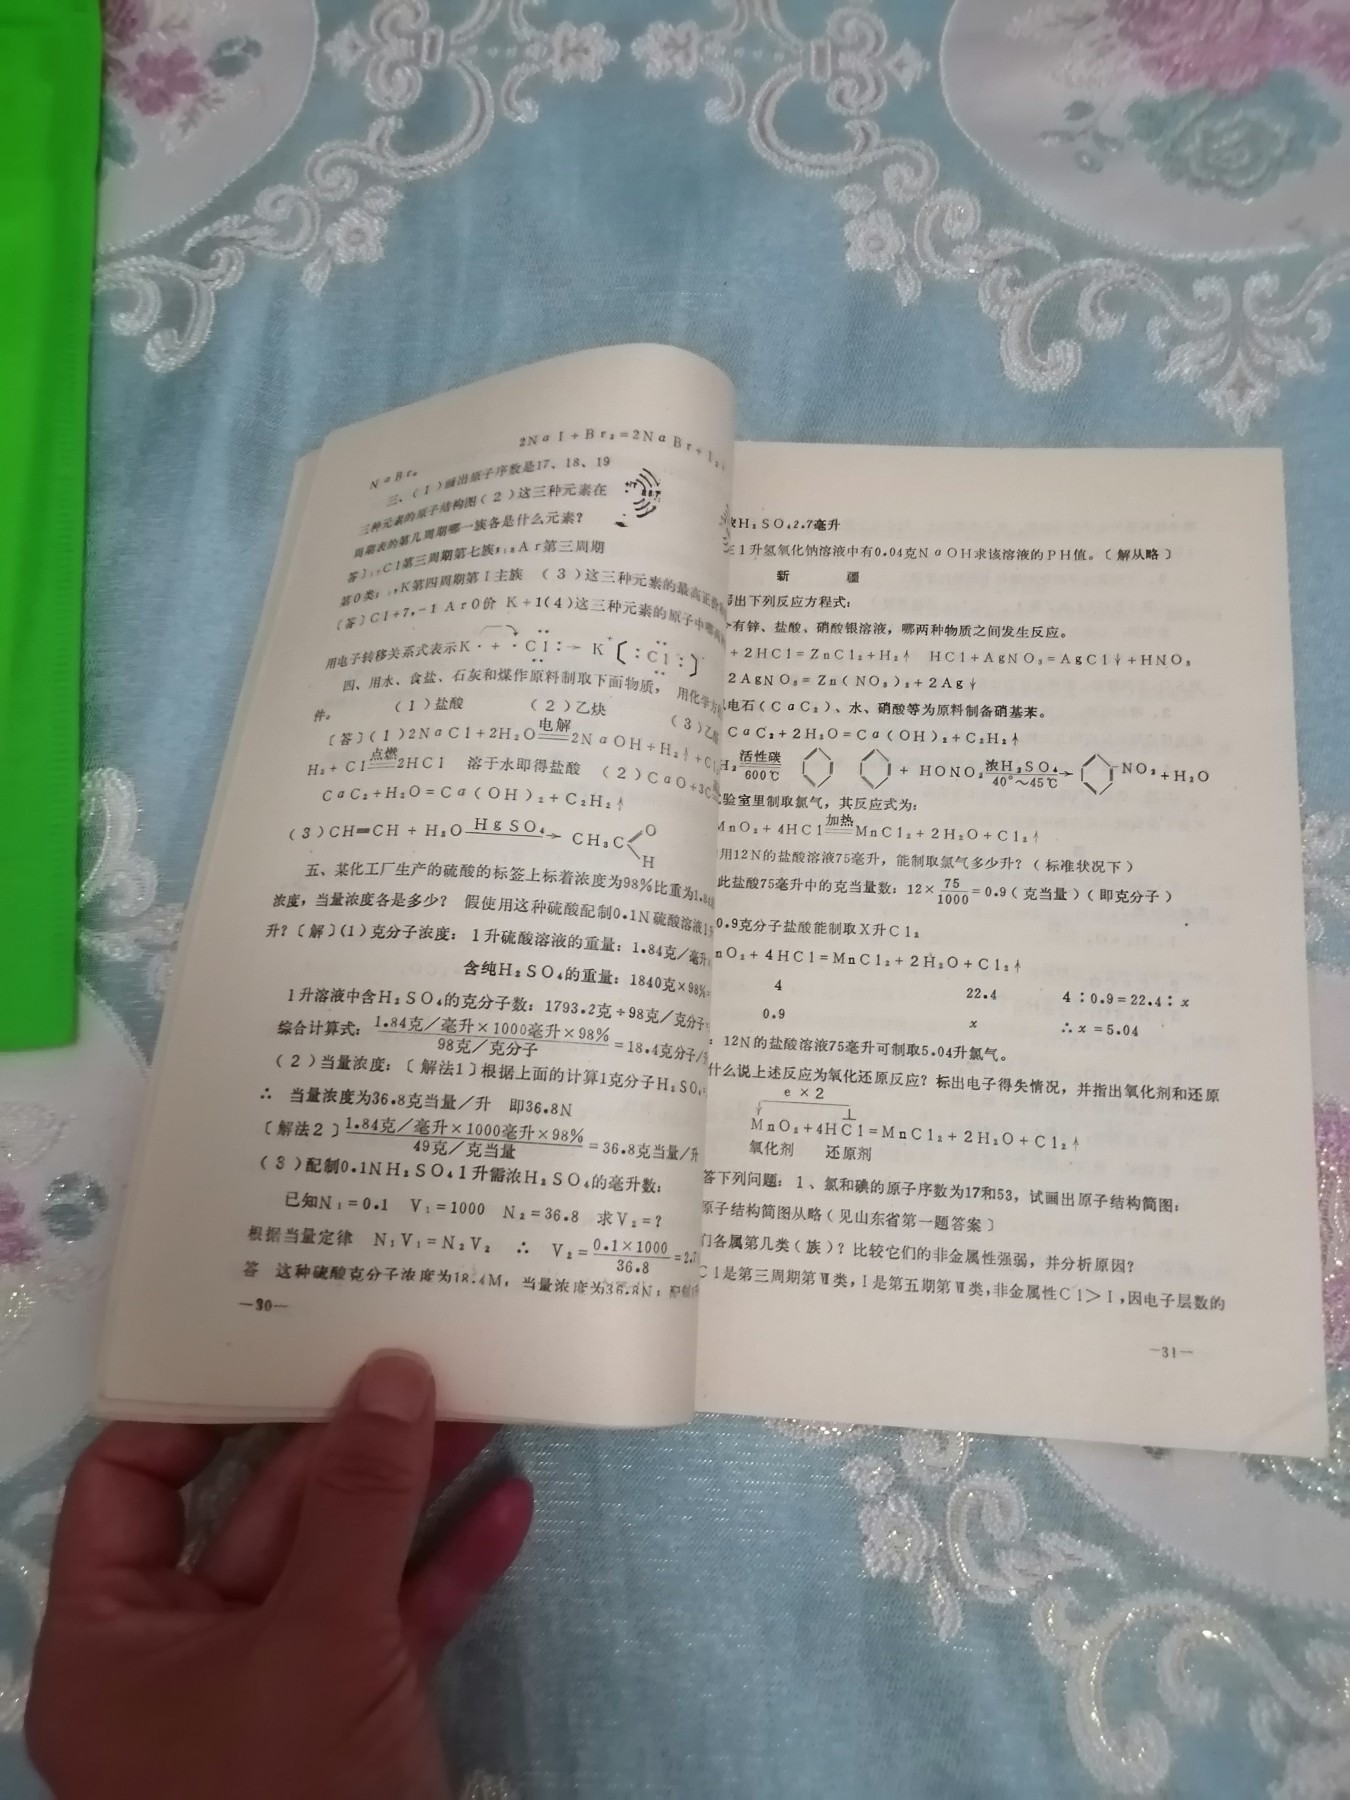 2NaI+Br₂=2NaBr+I₂
NaBr。
三、(1)画出原子序数是17、18、19
三种元素的原子结构图(2)这三种元素在
周期表的第几周期哪一族各是什么元素?
答〕₁₇Cl第三周期第七族₁₈Ar第三周期
第0类₁₉K第四周期第Ⅰ主族 (3)这三种元素的最高正价
〔答〕Cl+7,-1 Ar0价 K+1(4)这三种元素的原子中哪
用电子转移关系式表示K·+·Cl:→K⁺〔:Cl:〕⁻
四、用水、食盐、石灰和煤作原料制取下面物质,用化学方
件。 (1)盐酸 (2)乙炔 (3)乙
〔答〕(1)2NaCl+2H₂O 电解 2NaOH+H₂↑+Cl₂
H₂+Cl 点燃 2HCl 溶于水即得盐酸 (2)CaO+3C
CaC₂+H₂O=Ca(OH)₂+C₂H₂↑
(3)CH≡CH+H₂O HgSO₄→ CH₃C O H
五、某化工厂生产的硫酸的标签上标着浓度为98%比重为1.84
浓度,当量浓度各是多少? 假使用这种硫酸配制0.1N硫酸溶液1
升?〔解〕(1)克分子浓度: 1升硫酸溶液的重量:1.84克/毫升
含纯H₂SO₄的重量:1840克×98%=
1升溶液中含H₂SO₄的克分子数:1793.2克÷98克/克分子
综合计算式: 1.84克/毫升×1000毫升×98% / 98克/克分子 =18.4克分子/
(2)当量浓度:〔解法1〕根据上面的计算1克分子H₂SO₄
∴ 当量浓度为36.8克当量/升 即36.8N
〔解法2〕 1.84克/毫升×1000毫升×98% / 49克/克当量 =36.8克当量/升
(3)配制0.1NH₂SO₄1升需浓H₂SO₄的毫升数:
已知N₁=0.1 V₁=1000 N₂=36.8 求V₂=?
根据当量定律 N₁V₁=N₂V₂ ∴ V₂= 0.1×1000 / 36.8 =2.7
答 这种硫酸克分子浓度为18.4M,当量浓度为36.8N;配制
—30—
H₂SO₄2.7毫升
1升氢氧化钠溶液中有0.04克NaOH求该溶液的PH值。〔解从略〕
新 疆
出下列反应方程式:
有锌、盐酸、硝酸银溶液,哪两种物质之间发生反应。
+2HCl=ZnCl₂+H₂↑ HCl+AgNO₃=AgCl↓+HNO₃
2AgNO₃=Zn(NO₃)₂+2Ag↓
电石(CaC₂)、水、硝酸等为原料制备硝基苯。
CaC₂+2H₂O=Ca(OH)₂+C₂H₂↑
H₂ 活性碳 600℃ + HONO₂ 浓H₂SO₄ 40°~45℃→ -NO₂+H₂O
验室里制取氯气,其反应式为:
MnO₂+4HCl 加热 MnCl₂+2H₂O+Cl₂↑
用12N的盐酸溶液75毫升,能制取氯气多少升?(标准状况下)
此盐酸75毫升中的克当量数:12× 75 / 1000 =0.9(克当量)(即克分子)
0.9克分子盐酸能制取X升Cl₂
nO₂+4HCl=MnCl₂+2H₂O+Cl₂↑
4 22.4 4:0.9=22.4:x
0.9 x ∴x=5.04
:12N的盐酸溶液75毫升可制取5.04升氯气。
什么说上述反应为氧化还原反应?标出电子得失情况,并指出氧化剂和还原
e×2
MnO₂+4HCl=MnCl₂+2H₂O+Cl₂↑
氧化剂 还原剂
答下列问题:1、氯和碘的原子序数为17和53,试画出原子结构简图:
原子结构简图从略(见山东省第一题答案〕
们各属第几类(族)?比较它们的非金属性强弱,并分析原因?
Cl是第三周期第Ⅶ类,I是第五期第Ⅶ类,非金属性Cl>I,因电子层数的
—31—